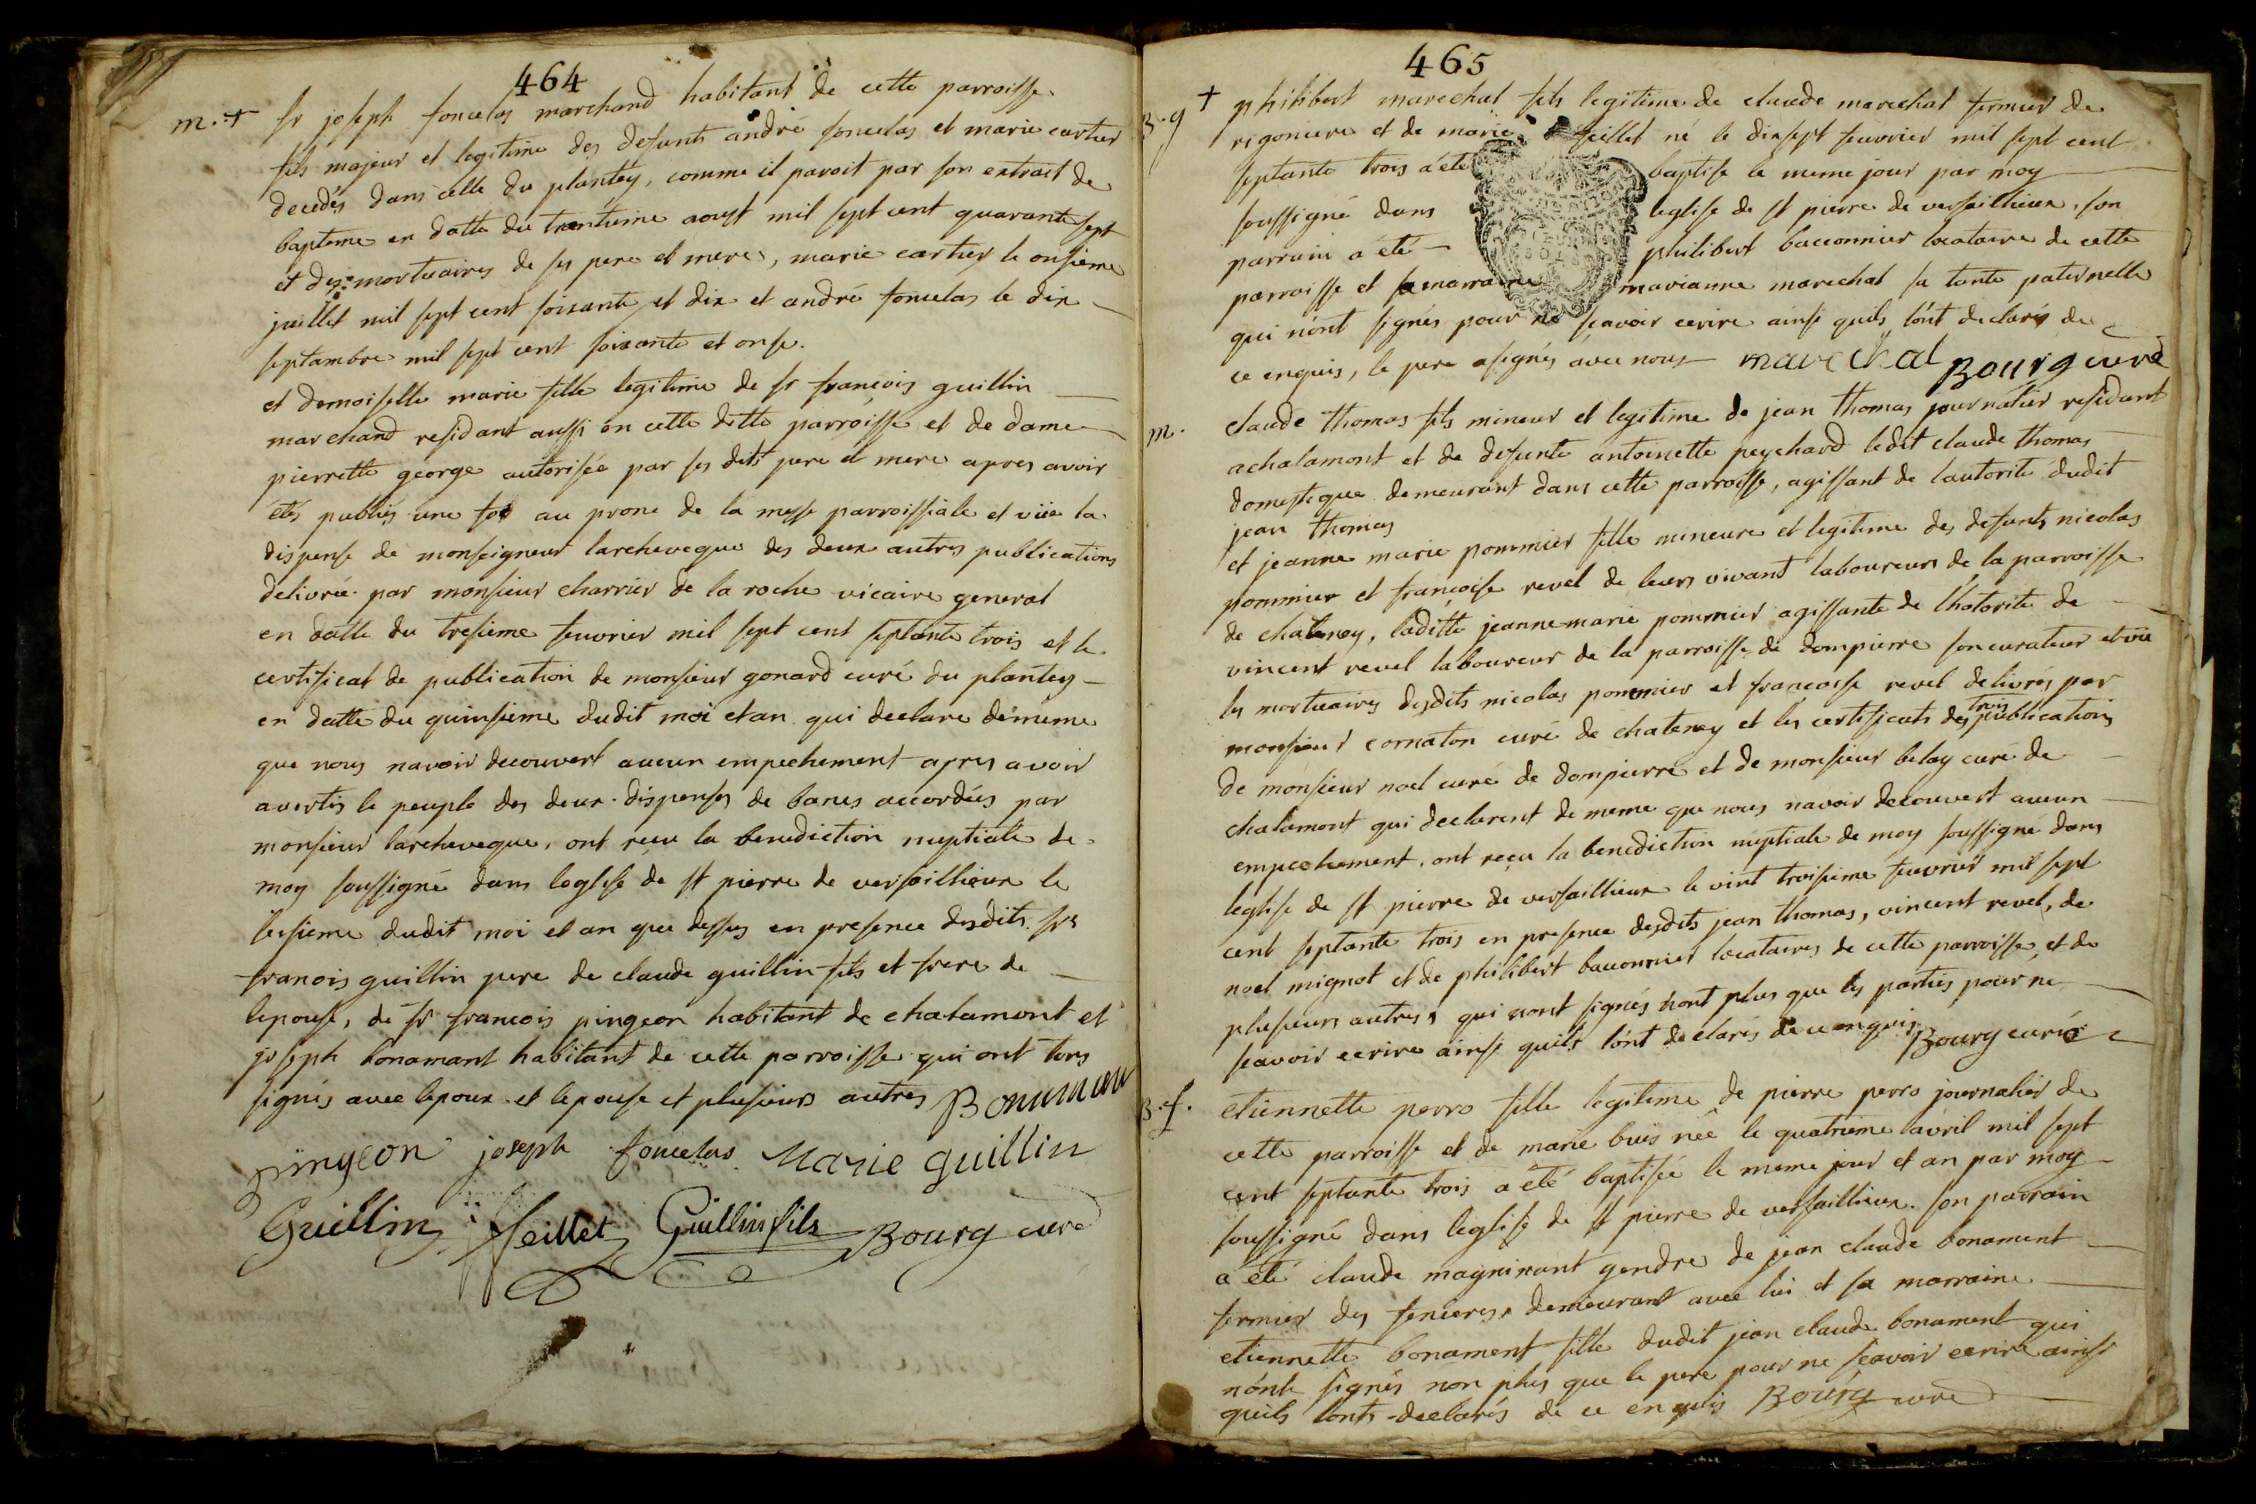 464
m. + sr joseph foncelas marchand habitant de cette parroisse
fils majeur et legitime des defunts andré foncelas et marie cartier
decedés dans celle du plantey, comme il paroit par son extrait de
bapteme en datte du trentieme aoust mil sept cent quarante sept
et des mortuaires de ses pere et mere, marie cartier le onsieme
juillet mil sept cent soixante et dix et andré foncelas le dix
septambre mil sept cent soixante et onse.
et demoiselle marie fille legitime de sr françois guillin
marchand residant aussi en cette ditte parroisse et de dame
pierrette george autorisée par ses dits pere et mere apres avoir
étés publiés une foi au prone de la messe parroissiale et vüe la
dispense de monseigneur larcheveque des deux autres publications
delivrée par monsieur charrier de la roche vicaire general
en datte du tresieme feuvrier mil sept cent septante trois et le
certificat de publication de monsieur gonard curé du plantey
en datte du quinsieme dudit moi et an qui declare de meme
que nous navoir decouvert aucun empechement apres avoir
avertis le peuple des deux dispenses de bancs accordées par
monsieur larcheveque, ont reçu la benediction nuptiale de
moy soussigné dans leglise de st pierre de versaillieux le
seisieme dudit moi et an que dessus en presence desdits srs
franois guillin pere de claude guillin fils et frere de
lepouse, de sr francois pingeon habitant de chalamont et
joseph bonamant habitant de cette parroisse qui ont tous
signés avec lepoux et lepouse et plusieurs autres Bonamant
pingeon joseph foncelas Marie guillin
Guillin feillet Guillin fils Bourg curé
465
B. g + philibert marechal fils legitime de claude marechal fermier de
rigoniere et de marie feillet né le dix sept feuvrier mil sept cent
septante trois a été baptise le meme jour par moy
soussigné dans leglise de st pierre de versaillieux, son
parrain a été philibert bacconnier locataire de cette
parroisse et sa marraine marianne marechal sa tante paternelle
qui nont signés pour ne sçavoir ecrire ainsi quils lont declarés de
ce enquis, le pere a signés avec nous marechal Bourg curé
m. claude thomas fils mineur et legitime de jean thomas journalier residant
a chalamont et de defunte antoinette peychard ledit claude thomas
domestique demeurant dans cette parroisse, agissant de lautorité dudit
jean thomas
et jeanne marie pommier fille mineure et legitime des defunts nicolas
pommier et françoise revel de leurs vivant laboureurs de la parroisse
de chatenay, laditte jeanne marie pommier agissante de lhotorité de
vincent revel laboureur de la parroisse de dompierre son curateur et vüe
les mortuaires desdits nicolas pommier et françoisse revel delivrés par
monsieur cornaton curé de chatenay et les certificats des trois publications
de monsieur noel curé de dompierre et de monsieur belay curé de
chalamont qui declarent de meme que nous navoir decouvert aucun
empechement, ont reçu la benediction nuptiale de moy soussigné dans
leglise de st pierre de versaillieux le vint troisieme feuvrier mil sept
cent septante trois en presence desdits jean thomas, vincent revel, de
noel mignot et de philibert bacconnier locataires de cette parroisse et de
plusieurs autres qui nont signés nont plus que les parties pour ne
scavoir ecrire ainsi quils lont declarés de ce enquis Bourg curé
B. f. etiennette perro fille legitime de pierre perro journalier de
cette parroisse et de marie buis née le quatrieme avril mil sept
cent septante trois a été baptisée le meme jour et an par moy
soussigné dans leglise de st pierre de versaillieux. son parrain
a été claude magninant gendre de jean claude bonament
fermier des fenieres demeurant avec lui et sa marraine
etiennette bonament fille dudit jean claude bonament qui
nont signés non plus que le pere pour ne sçavoir ecrire ainsi
quils lonts declarés de ce enquis Bourg curé